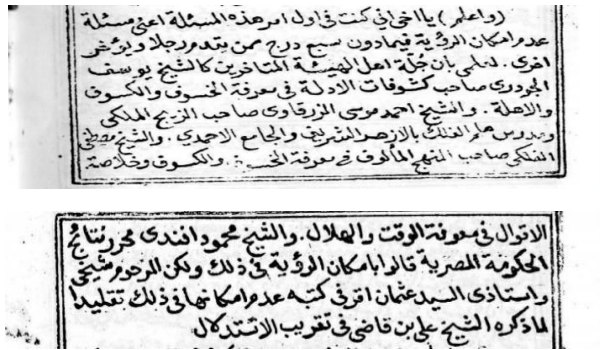 (واعلم) يا اخي اني كنت في اول امر هذه المسئلة اعني مسئلة
عدم امكان الرؤية فيما دون سبع درج ممن يقدم رجلا ويؤخر
اخرى. لعلمي بان جلة اهل الهيئة المتاخرين كالشيخ يوسف
صاحب كشوفات الادلة في معرفة الخسوف والكسوف
والاهلة. والشيخ احمد موسى الزرقاوي صاحب الزيج الملكي
ومدرس علم الفلك بالازهر الشريف والجامع الاحمدي. والشيخ مصطفى
الفلكي صاحب المنهج المألوف في معرفة الخسوف والكسوف وخلاصة
الاقوال في معرفة الوقت والهلال. والشيخ محمود افندى محرر نتائج
الحكومة المصرية قالوا بامكان الرؤية في ذلك ولكن المرحوم شيخي
واستاذى السيد عثمان اقر في كتبه عدم امكانها في ذلك تقليدا
لما ذكره الشيخ علي بن قاضي في تقريب الاستدلال